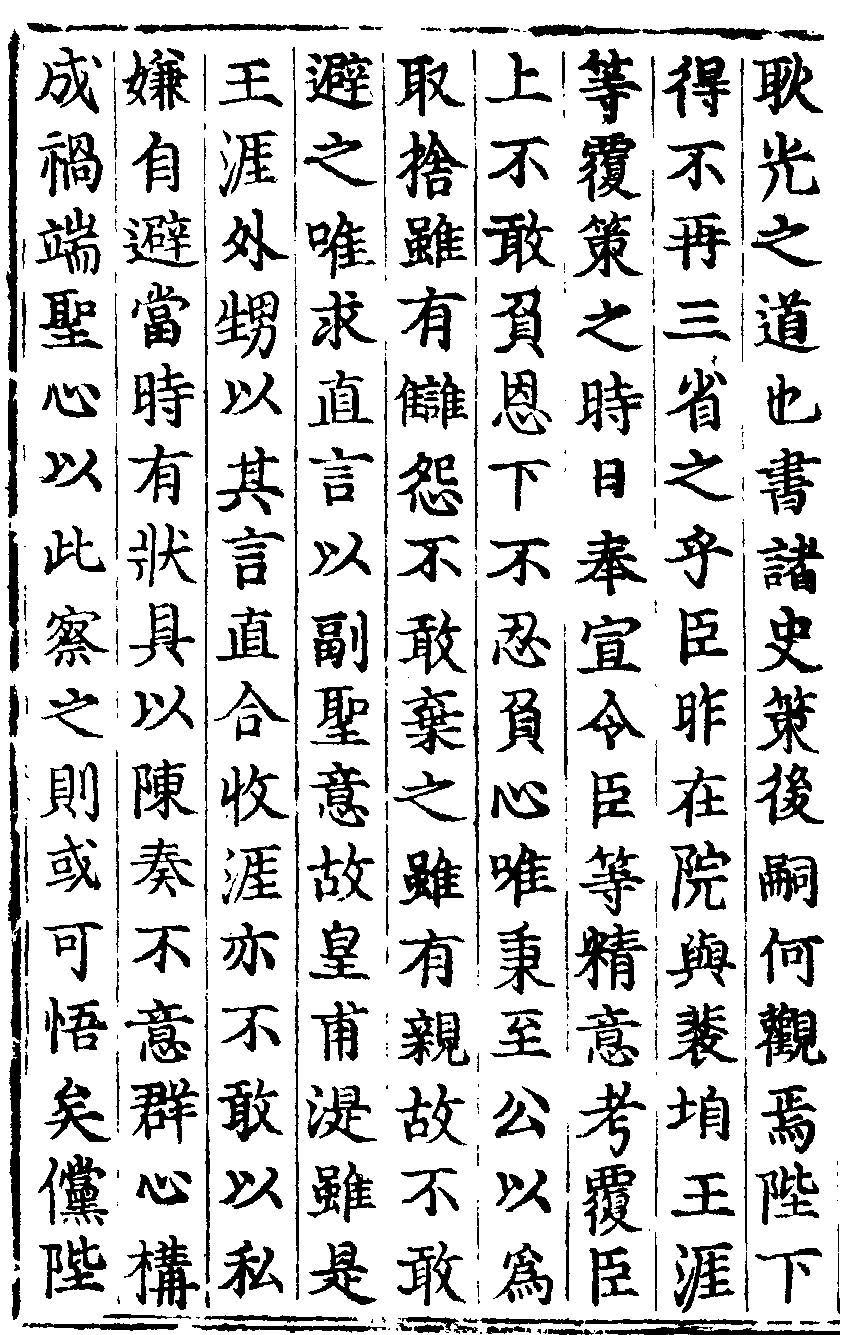 耿光之道也書諸史策後嗣何觀焉陛下
得不再三省之乎臣昨在院與裴垍王涯
等覆策之時日奉宣令臣等精意考覆臣
上不敢負恩下不忍負心唯秉至公以爲
取捨雖有讎怨不敢棄之雖有親故不敢
避之唯求直言以副聖意故皇甫湜雖是
王涯外甥以其言直合收涯亦不敢以私
嫌自避當時有狀具以陳奏不意群心構
成禍端聖心以此察之則或可悟矣儻陛